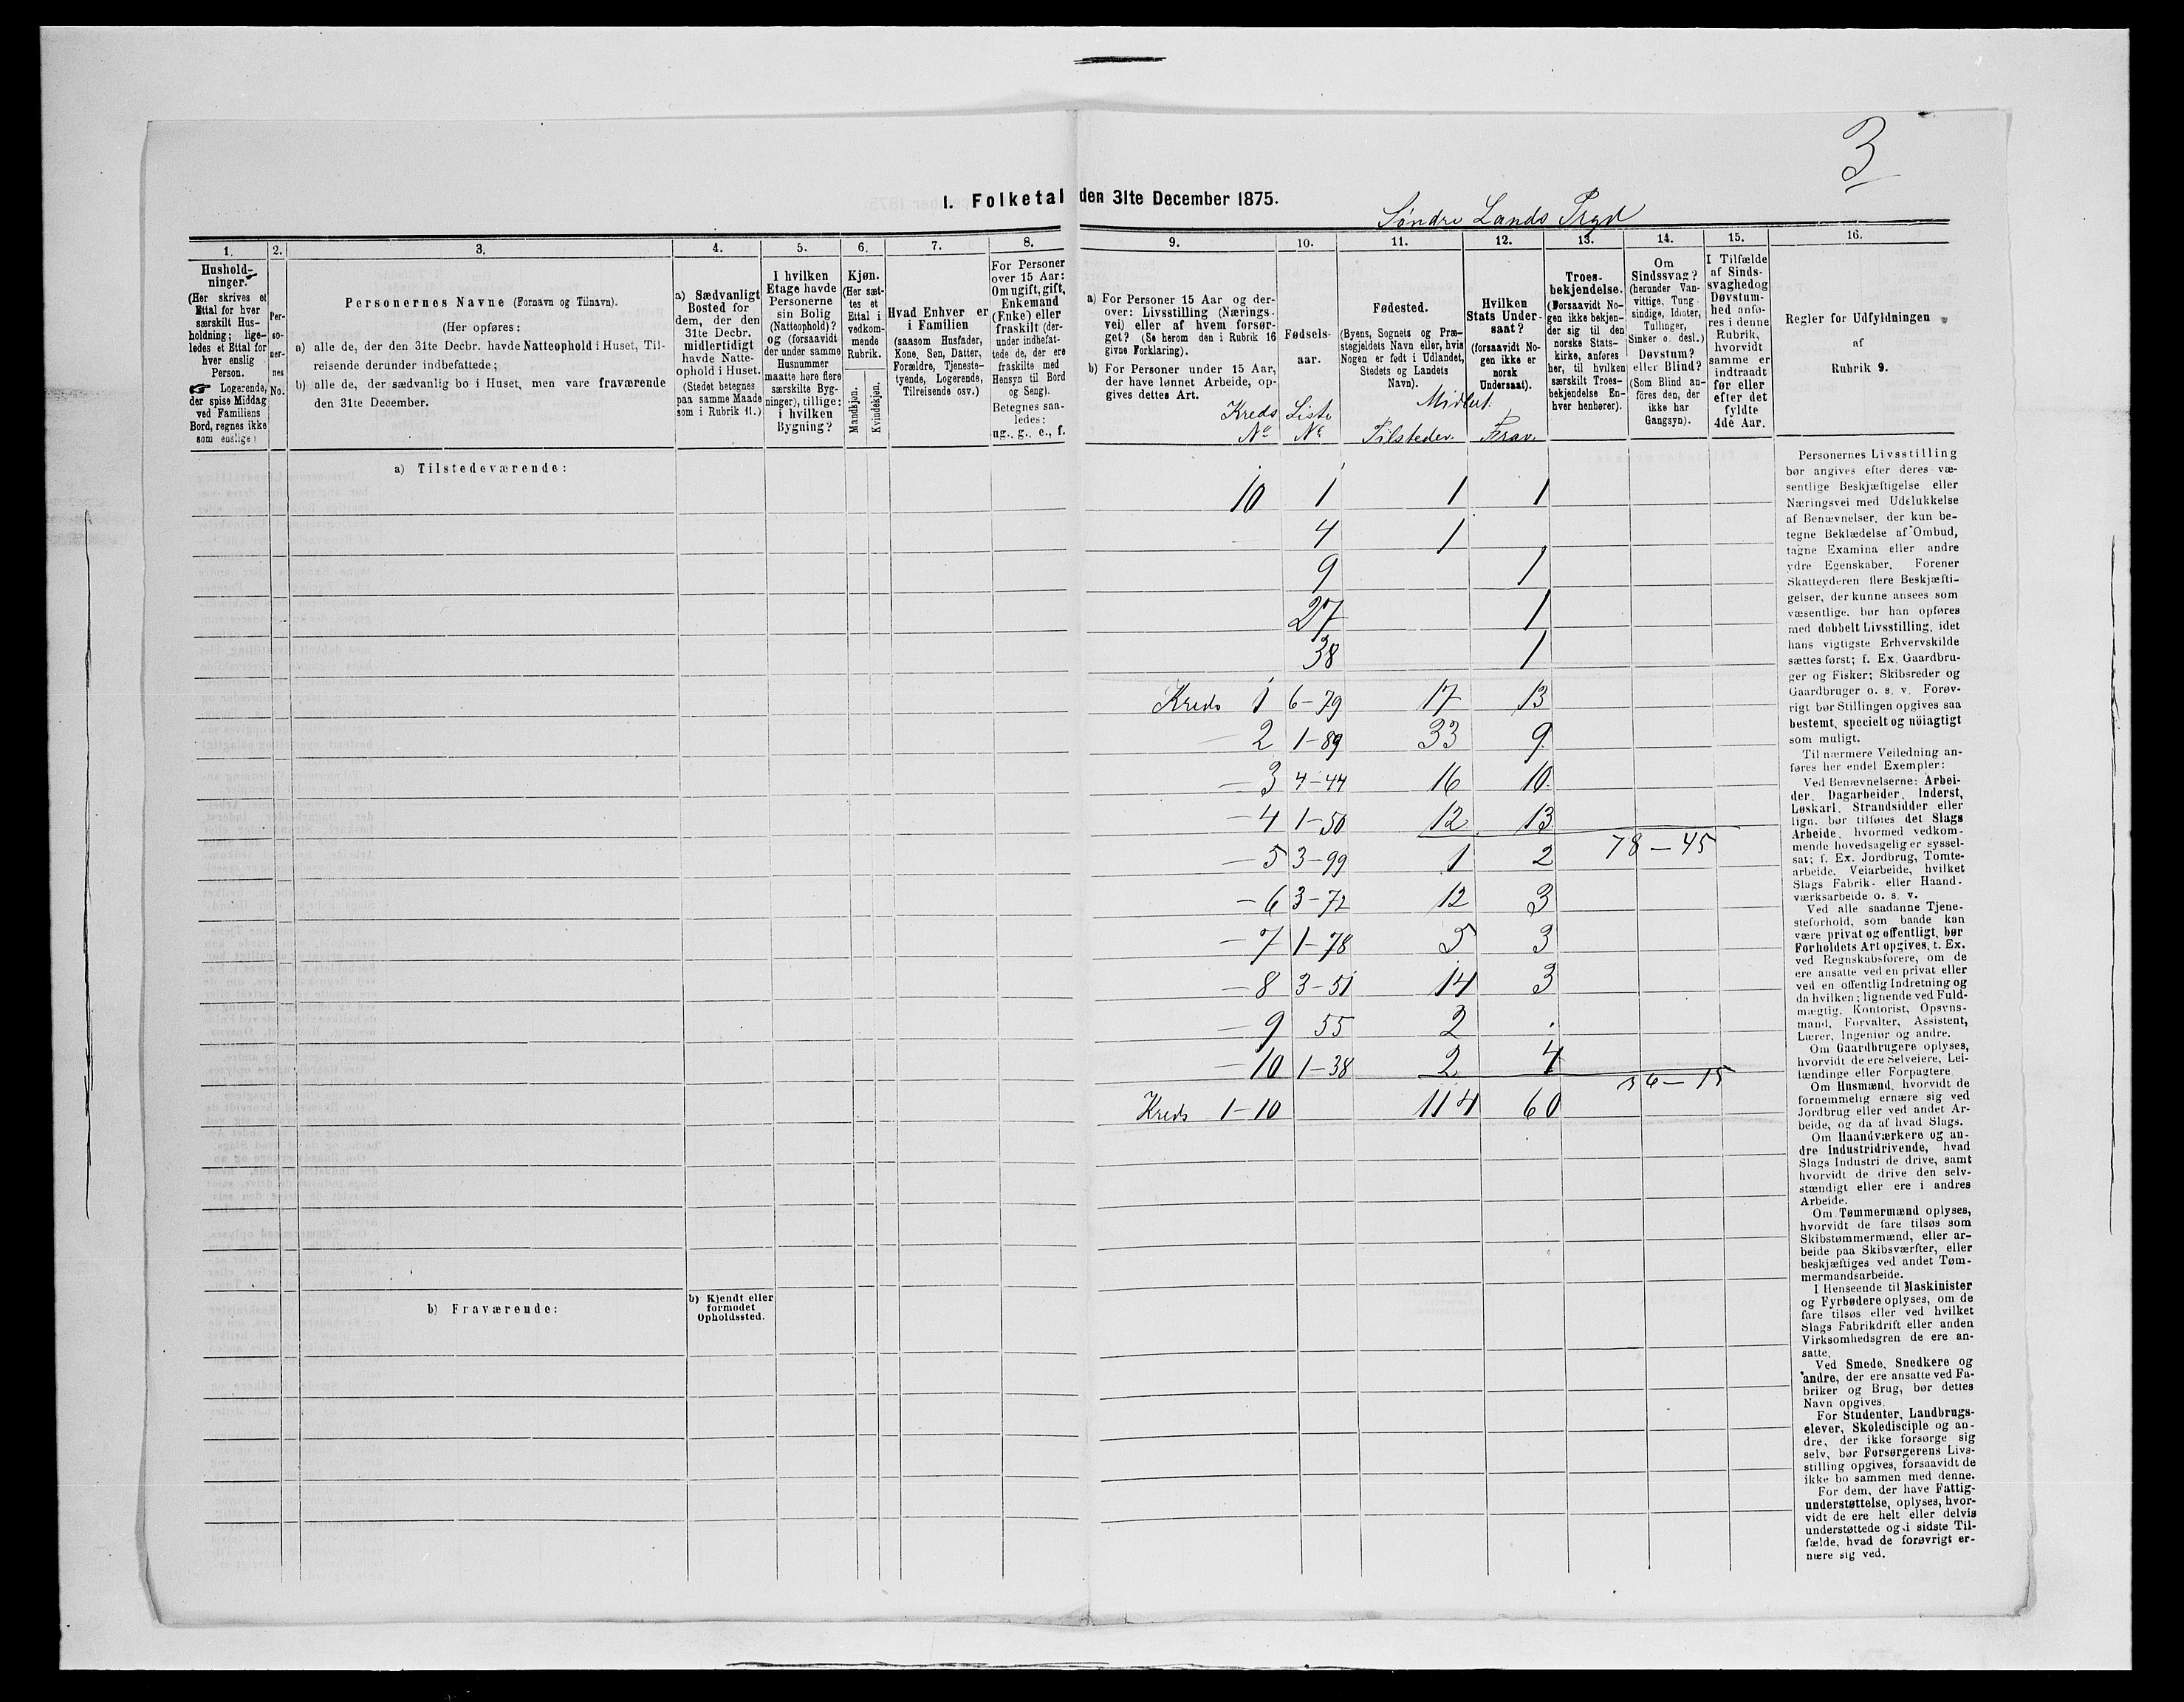 3
I. Folketal den 31te December 1875.
Søndre Lands Prgd
1.
Hushold-
ninger.
(Her skrives et
Ettal for hver
særskilt Hus-
holdning; lige-
ledes et Ettal for
hver enslig
Person.
☞ Logerende,
der spise Middag
ved Familiens
Bord, regnes ikke
som enslige)
2.
Per-
so-
ner-
nes
No.
3.
Personernes Navne (Fornavn og Tilnavn).
(Her opføres:
a) alle de, der den 31te Decbr. havde Natteophold i Huset, Til-
reisende derunder indbefattede;
b) alle de, der sædvanlig bo i Huset, men vare fraværende
den 31te December.
4.
a) Sædvanligt
Bosted for
dem, der den
31te Decbr.
midlertidigt
havde Natte-
ophold i Huset.
(Stedet betegnes
paa samme Maade
som i Rubrik 11.)
5.
I hvilken
Etage havde
Personerne
sin Bolig
(Natteophold)?
og (forsaavidt
der under samme
Husnummer
maatte høre flere
særskilte Byg-
ninger), tillige:
i hvilken
Bygning?
6.
Kjøn.
(Her sæt-
tes et
Ettal i
vedkom-
mende
Rubrik.
Mandkjøn.
Kvindekjøn.
7.
Hvad Enhver er
i Familien
(saasom Husfader,
Kone, Søn, Datter,
Forældre, Tjeneste-
tyende, Logerende,
Tilreisende osv.)
8.
For Personer
over 15 Aar:
Om ugift, gift,
Enkemand
(Enke) eller
fraskilt (der-
under indbefat-
tede de, der ere
fraskilte med
Hensyn til Bord
og Seng).
Betegnes saa-
ledes:
ug., g., e., f.
9.
a) For Personer 15 Aar og der-
over: Livsstilling (Nærings-
vei) eller af hvem forsør-
get? (Se herom den i Rubrik 16
givne Forklaring).
b) For Personer under 15 Aar,
der have lønnet Arbeide, op-
gives dettes Art.
Kreds
No
10.
Fødsels-
aar.
Liste
No
11.
Fødested.
(Byens, Sognets og Præ-
stegjeldets Navn eller, hvis
Nogen er født i Udlandet,
Stedets og Landets
Navn).
Midlert.
Tilstedev.
12.
Hvilken
Stats Under-
saat?
(forsaavidt No-
gen ikke er
norsk
Undersaat).
Frav.
13.
Troes-
bekjendelse.
(Forsaavidt No-
gen ikke bekjen-
der sig til den
norske Stats-
kirke, anføres
her, til hvilken
særskilt Troes-
bekjendelse En-
hver henhører).
14.
Om
Sindssvag?
(herunder Van-
vittige, Tung-
sindige, Idioter,
Tullinger,
Sinker o. desl.)
Døvstum?
eller Blind?
(Som Blind an-
føres den, der
ikke har
Gangsyn).
15.
I Tilfælde
af Sinds-
svaghed og
Døvstum-
hed anfø-
res i denne
Rubrik,
hvorvidt
samme er
indtraadt
før eller
efter det
fyldte
4de Aar.
16.
Regler for Udfyldningen
af
Rubrik 9.
a) Tilstedeværende:
10 1 1 1
4 1
9 1
27 1
38 1
Kreds 1 6-79 17 13
— 2 1-89 33 9
— 3 4-44 16 10
— 4 1-50 12 13
78-45
— 5 3-99 1 2
— 6 3-72 12 3
— 7 1-78 5 3
— 8 3-51 14 3
— 9 55 2 .
— 10 1-38 2 4
36-15
Kreds 1-10 114 60
b) Fraværende:
b) Kjendt eller
formodet
Opholdssted.
Personernes Livsstilling
bør angives efter deres væ-
sentlige Beskjæftigelse eller
Næringsvei med Udelukkelse
af Benævnelser, der kun be-
tegne Beklædelse af Ombud,
tagne Examina eller andre
ydre Egenskaber. Forener
Skatteyderen flere Beskjæfti-
gelser, der kunne ansees som
væsentlige, bør han opføres
med dobbelt Livsstilling, idet
hans vigtigste Erhvervskilde
sættes først; f. Ex. Gaardbru-
ger og Fisker; Skibsreder og
Gaardbruger o. s. v. Forøv-
rigt bør Stillingen opgives saa
bestemt, specielt og nöiagtigt
som muligt.
Til nærmere Veiledning an-
føres her endel Exempler:
Ved Benævnelserne: Arbei-
der, Dagarbeider, Inderst,
Løskarl, Strandsidder eller
lign. bør tilføies det Slags
Arbeide, hvormed vedkom-
mende hovedsagelig er syssel-
sat; f. Ex. Jordbrug, Tomte-
arbeide, Veiarbeide, hvilket
Slags Fabrik- eller Haand-
værksarbeide o. s. v.
Ved alle saadanne Tjene-
steforhold, som baade kan
være privat og offentligt, bør
Forholdets Art opgives, t. Ex.
ved Regnskabsførere, om de
ere ansatte ved en privat eller
ved en offentlig Indretning og
da hvilken; lignende ved Fuld-
mægtig, Kontorist, Opsyns-
mand, Forvalter, Assistent,
Lærer, Ingeniør og andre.
Om Gaardbrugere oplyses,
hvorvidt de ere Selveiere, Lei-
lændinge eller Forpagtere.
Om Husmænd, hvorvidt de
fornemmelig ernære sig ved
Jordbrug eller ved andet Ar-
beide, og da af hvad Slags.
Om Haandværkere og an-
dre Industridrivende, hvad
Slags Industri de drive, samt
hvorvidt de drive den selv-
stændigt eller ere i andres
Arbeide.
Om Tømmermænd oplyses,
hvorvidt de fare tilsøs som
Skibstømmermænd, eller ar-
beide paa Skibsværfter, eller
beskjæftiges ved andet Tøm-
mermandsarbeide.
I Henseende til Maskinister
og Fyrbødere oplyses, om de
fare tilsøs eller ved hvilket
Slags Fabrikdrift eller anden
Virksomhedsgren de ere an-
satte.
Ved Smede, Snedkere og
andre, der ere ansatte ved Fa-
briker og Brug, bør dettes
Navn opgives.
For Studenter, Landbrugs-
elever, Skoledisciple og an-
dre, der ikke forsørge sig
selv, bør Forsørgerens Livs-
stilling opgives, forsaavidt de
ikke bo sammen med denne.
For dem, der have Fattig-
understøttelse, oplyses, hvor-
vidt de ere helt eller delvis
understøttede og i sidste Til-
fælde, hvad de forøvrigt er-
nære sig ved.